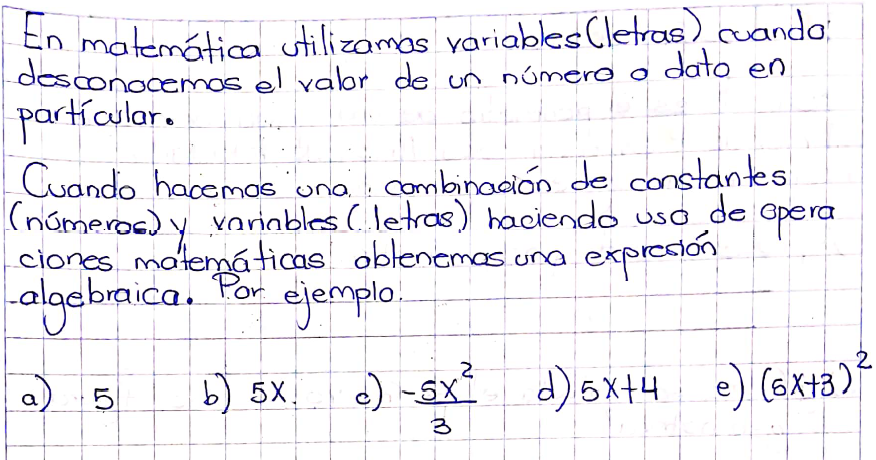 En matemática utilizamos variables (letras) cuando
desconocemos el valor de un número o dato en
partícular.
Cuando hacemos una combinación de constantes
(números) y variables (letras) haciendo uso de opera
ciones matemáticas obtenemos una expresión
algebraica. Por ejemplo.
a) 5 b) 5x. c) -5x²/3 d) 5x+4 e) (6x+3)²